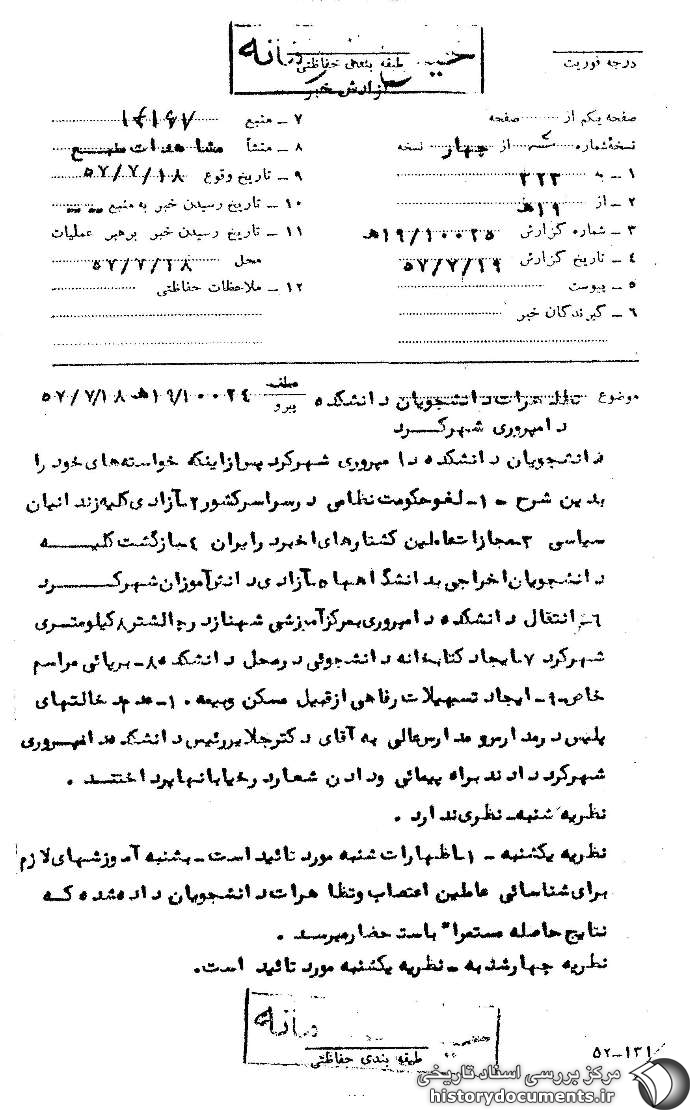 طبقه بندی حفاظتی
گزارش خبر
درجه فوریت
صفحه یکم از صفحه
نسخه شماره یک از چهار نسخه
۱ ـ به ۳۲۳
۲ ـ از ۱۹ ه‍
۳ ـ شماره گزارش ۱۹/۱۰۰۲۵ ه‍
۴ ـ تاریخ گزارش ۵۷/۷/۱۹
۵ ـ پیوست
۶ ـ گیرندگان خبر
۷ ـ منبع ۱۴۱۶۷
۸ ـ منشأ مشاهدات منبع
۹ ـ تاریخ وقوع ۵۷/۷/۱۸
۱۰ ـ تاریخ رسیدن خبر به منبع
۱۱ ـ تاریخ رسیدن خبر برهبر عملیات
محل ۵۷/۷/۱۸
۱۲ ـ ملاحظات حفاظتی
موضوع تظاهرات دانشجویان دانشکده
دامپروری شهرکرد
عطف
پیرو
۱۹/۱۰۰۲۴ ه‍ ۵۷/۷/۱۸
دانشجویان دانشکده دامپروری شهرکرد پس از اینکه خواسته‌های خود را
بدین شرح ـ ۱ـ لغو حکومت نظامی در سراسر کشور ۲ـ آزادی کلیه زندانیان
سیاسی ۳ـ مجازات عاملین کشتارهای اخیر در ایران ۴ـ بازگشت کلیه
دانشجویان اخراجی بدانشگاهها ۵ـ آزادی دانش‌آموزان شهرکرد
۶ـ انتقال دانشکده دامپروری بمرکز آموزشی شهناز در چالشتر ۸ کیلومتری
شهرکرد ۷ـ ایجاد کتابخانه دانشجوئی در محل دانشکده ۸ـ برپائی مراسم
خاص ۹ـ ایجاد تسهیلات رفاهی از قبیل مسکن و بیمه ۱۰ـ عدم دخالتهای
پلیس در مدارس و مدارس عالی به آقای دکتر جلایر رئیس دانشکده دامپروری
شهرکرد دادند براه پیمائی و دادن شعار در خیابانها پرداختند .
نظریه شنبه ـ نظری ندارد .
نظریه یکشنبه ـ ۱ـ اظهارات شنبه مورد تائید است ـ بشنبه آموزشهای لازم
برای شناسائی عاملین اعتصاب و تظاهرات دانشجویان داده شده که
نتایج حاصله مستمرا" باستحضار میرسد .
نظریه چهارشنبه ـ نظریه یکشنبه مورد تائید است.
طبقه بندی حفاظتی
۵۲ـ۱۳۱
مرکز بررسی اسناد تاریخی
historydocuments.ir